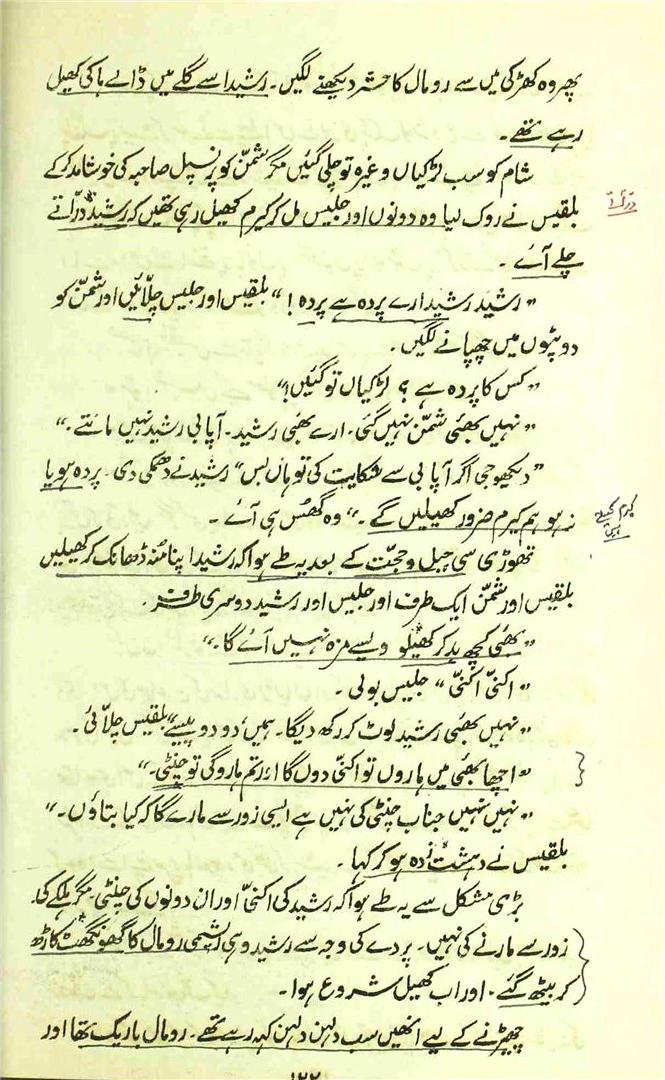 پھر وہ کھڑکی میں سے رومال کا حشر دیکھنے لگیں۔ رشید اسے گلے میں ڈالے ہاکی کھیل
رہے تھے۔
شام کو سب لڑکیاں وغیرہ تو چلی گئیں مگر شمّن کو پرنسپل صاحبہ کی خوشامد کر کے
بلقیس نے روک لیا وہ دونوں اور جلیس مل کر کیرم کھیل رہی تھیں کہ رشید درّاتے
درّاتے
چلے آئے۔
”رشید رشید ارے پردہ ہے پردہ!“ بلقیس اور جلیس چلّائیں اور شمّن کو
دوپٹوں میں چھپانے لگیں۔
”کس کا پردہ ہے؟ لڑکیاں تو گئیں!“
”نہیں بھئی شمّن نہیں گئی۔ ارے بھئی رشید۔ آپا بی رشید نہیں مانتے۔“
”دیکھو جی اگر آپا بی سے شکایت کی تو ہاں بس“ رشید نے دھمکی دی۔ پردہ ہو یا
نہ ہو ہم کیرم ضرور کھیلیں گے۔“ وہ گھُس ہی آئے۔
تھوڑی سی جبل و حجّت کے بعد یہ طے ہوا کہ رشید اپنا منہ ڈھانک کر کھیلیں
بلقیس اور شمّن ایک طرف اور جلیس اور رشید دوسری طرف۔
”بھئی کچھ بد کر کھیلو ویسے مزہ نہیں آئے گا۔“
”اکنّی اکنّی“ جلیس بولی۔
”نہیں بھئی رشید لوٹ کر رکھ دیگا۔ ہمیں، دو دو پیسے“ بلقیس چلّائی۔
”اچھا بھئی میں ہاروں تو اکنّی دوں گا اور تم ہاروگی تو چنٹی۔“
”نہیں نہیں جناب چنٹی کی نہیں ہے ایسی زور سے مارے گا کہ کیا بتاؤں۔“
بلقیس نے دہشت زدہ ہو کر کہا۔
بڑی مشکل سے یہ طے ہوا کہ رشید کی اکنّی اور ان دونوں کی چنٹی۔ مگر ہلکے کی۔
زور سے مارنے کی نہیں۔ پردے کی وجہ سے رشید وہی ریشمی رومال کا گھونگھٹ کاڑھ
کر بیٹھ گئے۔ اور اب کھیل شروع ہوا۔
چھیڑنے کے لیے انھیں سب دلہن دلہن کہہ رہے تھے۔ رومال باریک تھا اور